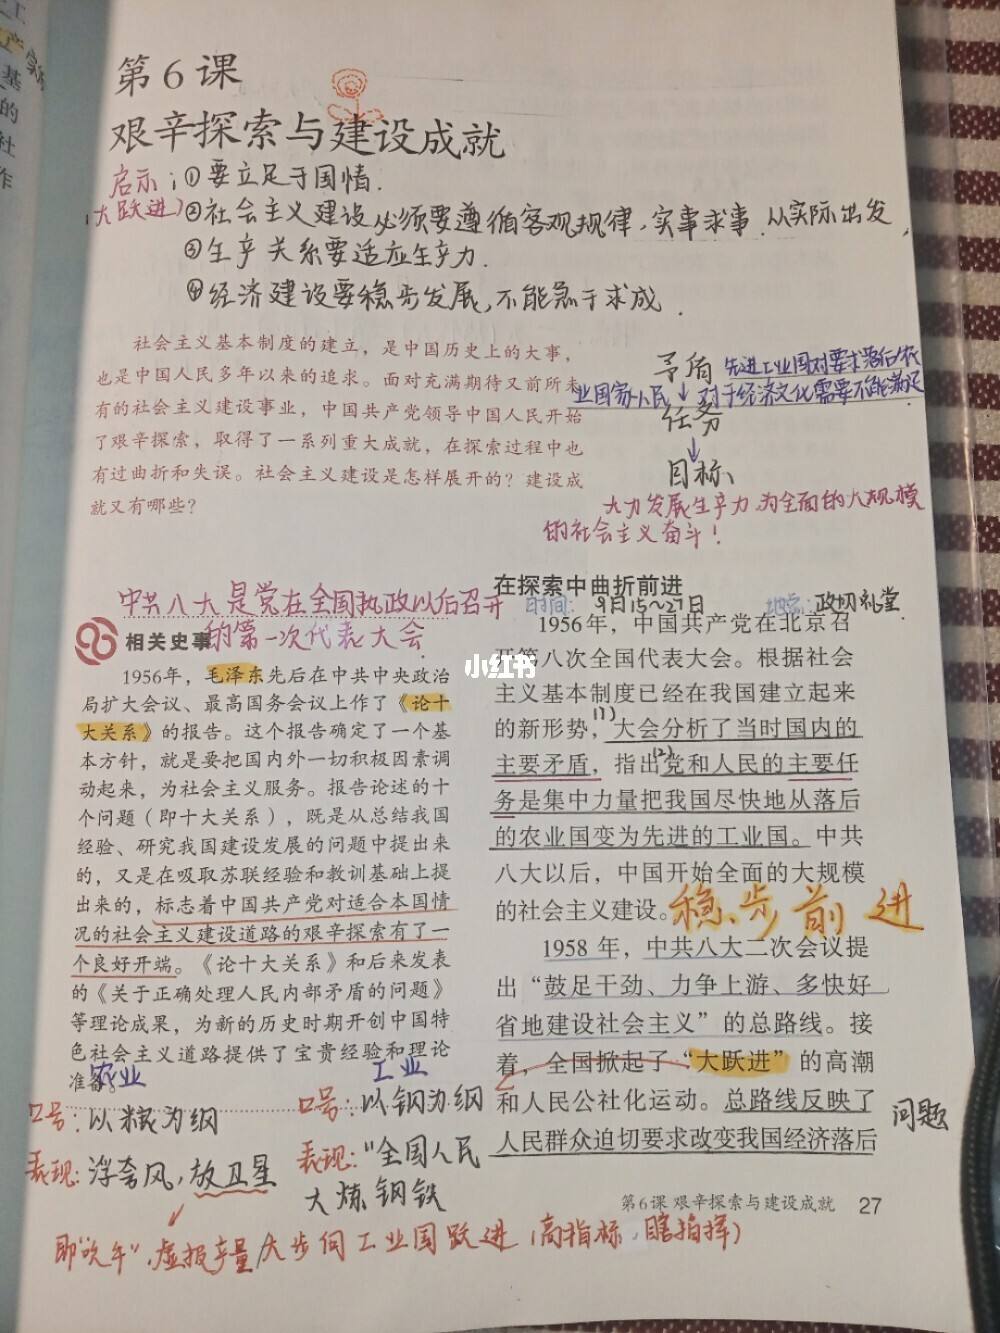 第6课
艰辛探索与建设成就
启示:①要立足于国情.
(大跃进)②社会主义建设必须要遵循客观规律,实事求事.从实际出发,
③生产关系要适应生产力.
④经济建设要稳步发展,不能急于求成.
社会主义基本制度的建立,是中国历史上的大事,
也是中国人民多年以来的追求。面对充满期待又前所未
有的社会主义建设事业,中国共产党领导中国人民开始
了艰辛探索,取得了一系列重大成就,在探索过程中也
有过曲折和失误。社会主义建设是怎样展开的?建设成
就又有哪些?
矛盾 先进工业国对要求落后农
业国家人民↓对于经济文化需要不能满足
任务
↓
目标、
大力发展生产力,为全面的大规模
的社会主义奋斗!
中共八大是党在全国执政以后召开
的第一次代表大会.
相关史事
1956年,毛泽东先后在中共中央政治
局扩大会议、最高国务会议上作了《论十
大关系》的报告。这个报告确定了一个基
本方针,就是要把国内外一切积极因素调
动起来,为社会主义服务。报告论述的十
个问题(即十大关系),既是从总结我国
经验、研究我国建设发展的问题中提出来
的,又是在吸取苏联经验和教训基础上提
出来的,标志着中国共产党对适合本国情
况的社会主义建设道路的艰辛探索有了一
个良好开端。《论十大关系》和后来发表
的《关于正确处理人民内部矛盾的问题》
等理论成果,为新的历史时期开创中国特
色社会主义道路提供了宝贵经验和理论
准备。
农业
口号:以粮为纲
表现:浮夸风,放卫星
工业
口号:以钢为纲
表现:"全国人民
大炼钢铁
即"吹牛",虚报产量
大步向工业国跃进(高指标,瞎指挥)
在探索中曲折前进
时间:9月15~27日 地点:政协礼堂
1956年,中国共产党在北京召
开第八次全国代表大会。根据社会
主义基本制度已经在我国建立起来
的新形势,(1)大会分析了当时国内的
主要矛盾,指出(2)党和人民的主要任
务是集中力量把我国尽快地从落后
的农业国变为先进的工业国。中共
八大以后,中国开始全面的大规模
的社会主义建设。稳步前进
1958年,中共八大二次会议提
出“鼓足干劲、力争上游、多快好
省地建设社会主义”的总路线。接
着,全国掀起了“大跃进”的高潮
和人民公社化运动。总路线反映了
人民群众迫切要求改变我国经济落后
问题
第6课 艰辛探索与建设成就 27
小红书